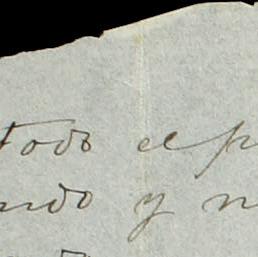 todo el p
ndo y n